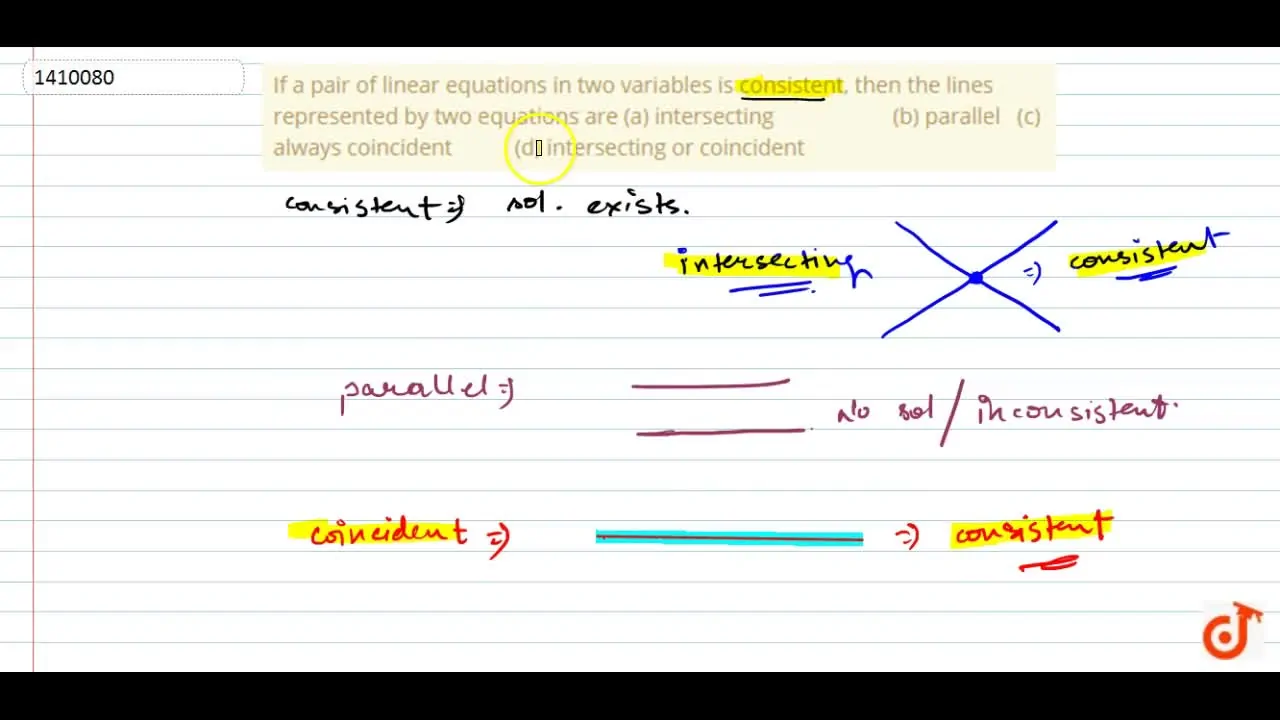 1410080
If a pair of linear equations in two variables is consistent, then the lines
represented by two equations are (a) intersecting (b) parallel (c)
always coincident (d) intersecting or coincident
consistent ⇒ sol. exists.
intersecting ⇒ consistent
parallel ⇒ no sol / inconsistent.
coincident ⇒ ⇒ consistent